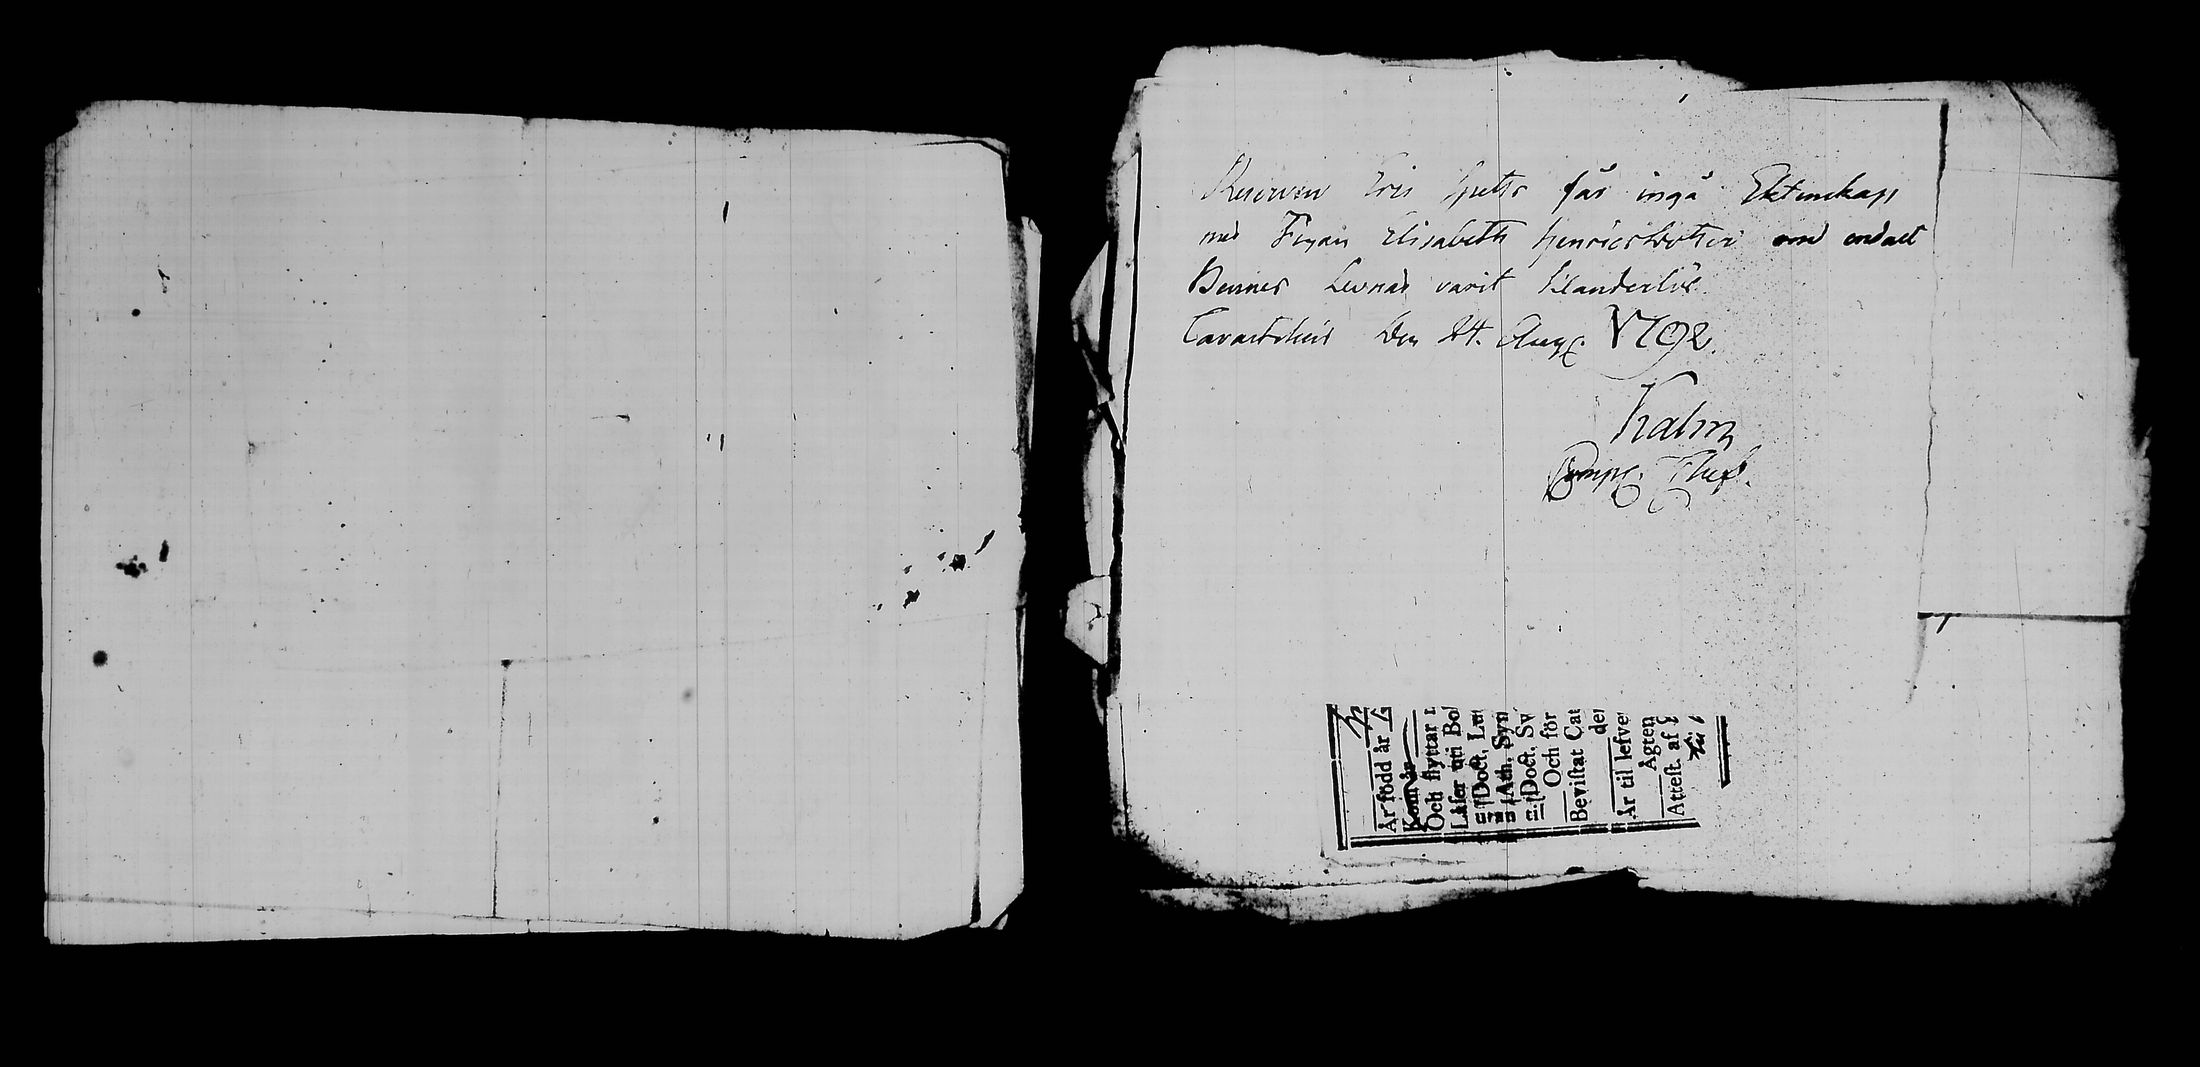 Reserven Eric Spets får ingå Ektenskap
med Pigan Elisabeth Henricsdotter om endast
Hennes Levnad varit klanderlös.
Tavastehus den 24. Aug. 1792.
Kalm
Comp. Chef.
År född år
Och flyttar
Läser uti Bo
Doct. Lu
Ath. Sy
Doct. Sv
Och för
Beviſtat Cat
de
År til lefver
Ägten
Atteſt. af